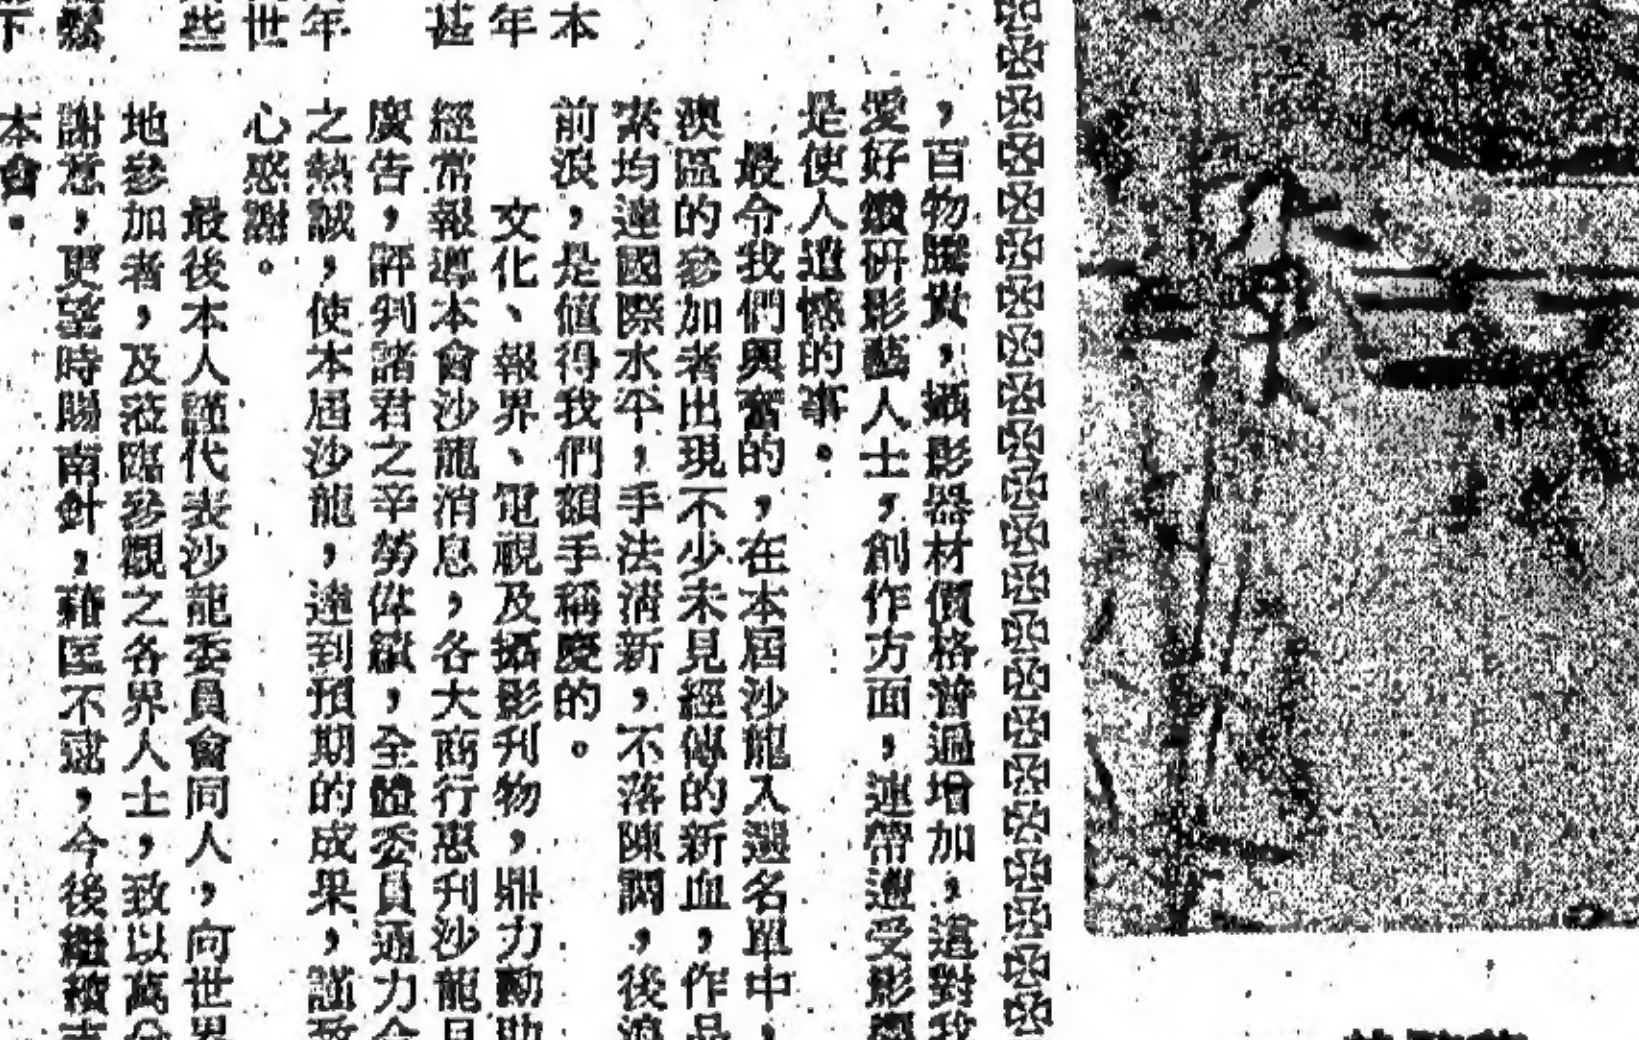 ，百物騰貴，攝影器材價格普遍增加，這對我
愛好鑽研影藝人士，創作方面，連帶遭受影響
是使人遺憾的事。
最令我們興奮的，在本屆沙龍入選名單中，
澳區的參加者出現不少未見經傳的新血，作品
素均達國際水平，手法清新，不落陳調，後浪
前浪，是值得我們額手稱慶的。
文化、報界、電視及攝影刊物，鼎力勷助
經常報導本會沙龍消息，各大商行惠刊沙龍
廣告，評判諸君之辛勞偉績，全體委員通力合
之熱誠，使本屆沙龍，達到預期的成果，謹致
心感謝。
最後本人謹代表沙龍委員會同人，向世界
地參加者，及蒞臨參觀之各界人士，致以萬分
謝意，更望時賜南針，藉匡不逮，今後繼續
本會。
本
年
甚
些
世
年
下